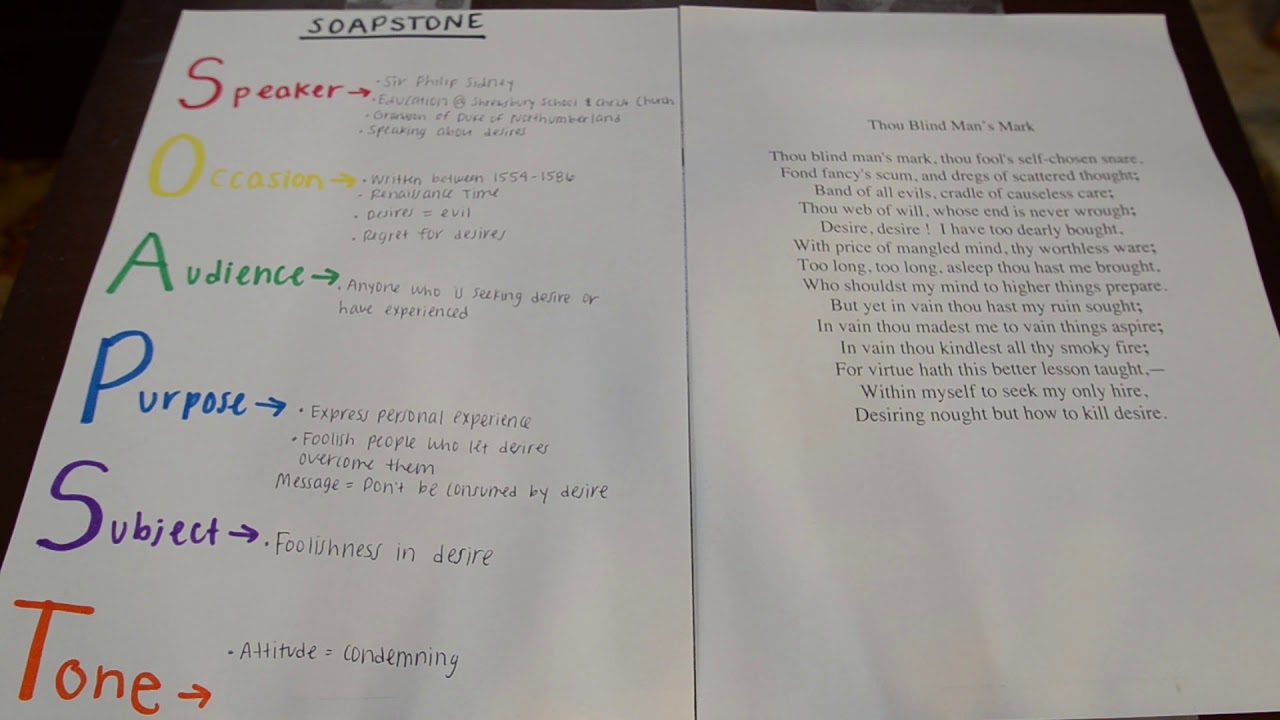 SOAPSTONE
Speaker →
· Sir Philip Sidney
· Education @ Shrewsbury School & Christ Church
· Grandson of Duke of Northumberland
· Speaking about desires
Occasion →
· Written between 1554-1586
· Renaissance Time
· Desires = evil
· Regret for desires
Audience →
· Anyone who is seeking desire or
have experienced
Purpose →
· Express personal experience
· Foolish people who let desires
overcome them
Message = Don't be consumed by desire
Subject →
· Foolishness in desire
Tone →
· Attitude = condemning
Thou Blind Man's Mark
Thou blind man's mark, thou fool's self-chosen snare,
Fond fancy's scum, and dregs of scattered thought;
Band of all evils, cradle of causeless care;
Thou web of will, whose end is never wrough;
Desire, desire ! I have too dearly bought,
With price of mangled mind, thy worthless ware;
Too long, too long, asleep thou hast me brought,
Who shouldst my mind to higher things prepare.
But yet in vain thou hast my ruin sought;
In vain thou madest me to vain things aspire;
In vain thou kindlest all thy smoky fire;
For virtue hath this better lesson taught,—
Within myself to seek my only hire,
Desiring nought but how to kill desire.